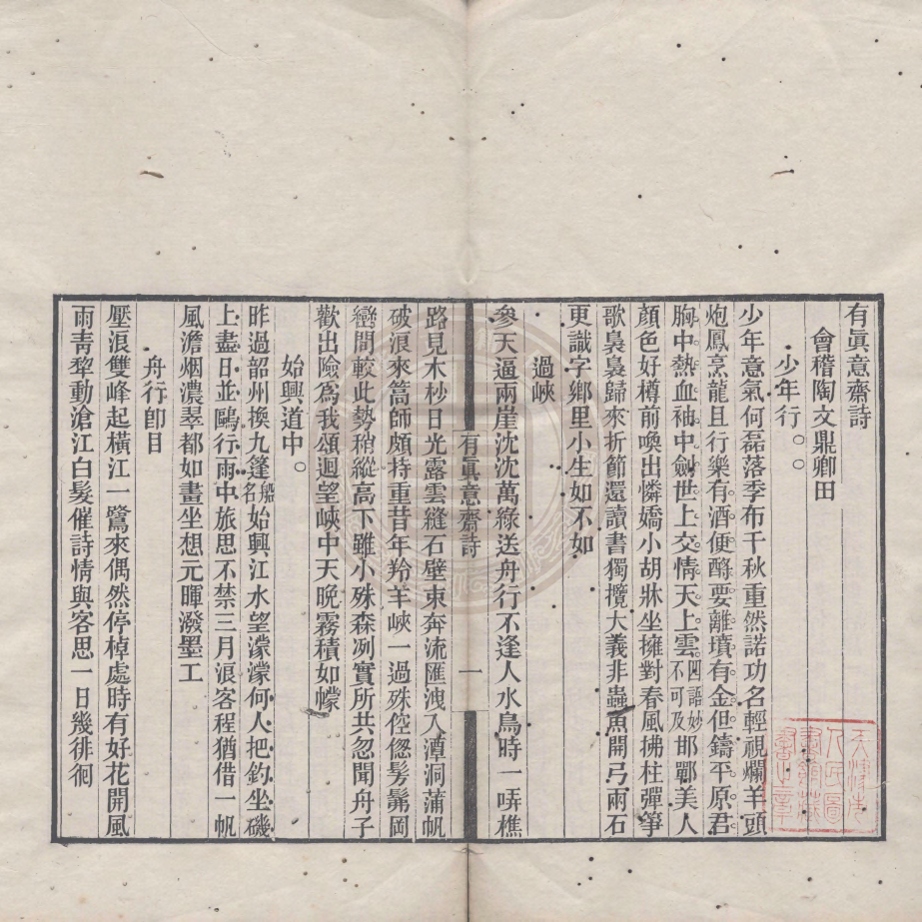 有眞意齋詩
會稽陶文鼎卿田
少年行
少年意氣何磊落季布千秋重然諾功名輕視爛羊頭
炮鳳烹龍且行樂有酒便酹要離墳有金但鑄平原君
胸中熱血袖中劍世上交情天上雲四語妙不可及邯鄲美人
顏色好樽前喚出憐嬌小胡牀坐擁對春風拂柱彈箏
歌裊裊歸來折節還讀書獨攬大義非蟲魚開弓兩石
更識字鄉里小生如不如
過峽
參天逼兩崖沈沈萬綠送舟行不逢人水鳥時一哢樵
路見木杪日光露雲縫石壁束奔流匯洩入潭洞蒲帆
破浪來篙師頗持重昔年羚羊峽一過殊倥傯髣髴岡
巒間較此勢稍縱高下雖小殊森冽實所共忽聞舟子
歡出險爲我頌迴望峽中天晚霧積如幪
始興道中
昨過韶州換九篷船名始興江水望濛濛何人把釣坐磯
上盡日並鷗行雨中旅思不禁三月浪客程猶借一帆
風澹烟濃翠都如畫坐想元暉潑墨工
舟行卽目
壓浪雙峰起橫江一鷺來偶然停棹處時有好花開風
雨靑犂動滄江白髮催詩情與客思一日幾徘徊
有眞意齋詩
一